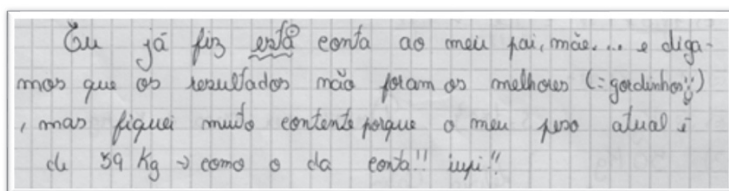 Eu já fiz está conta ao meu pai, mãe,... e diga-
mos que os resultados não foram os melhores (=gordinhos!!)
, mas fiquei muito contente porque o meu peso atual é
de 59 Kg → como o da conta!! iupi!!